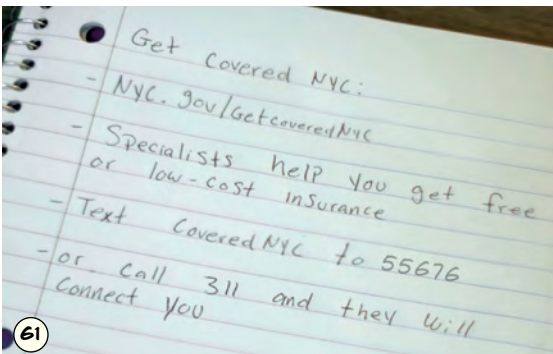 Get Covered NYC:
- NYC.gov/GetcoveredNYC
- Specialists help you get free
or low-cost insurance
- Text CoveredNYC to 55676
- or call 311 and they will
Connect you
61